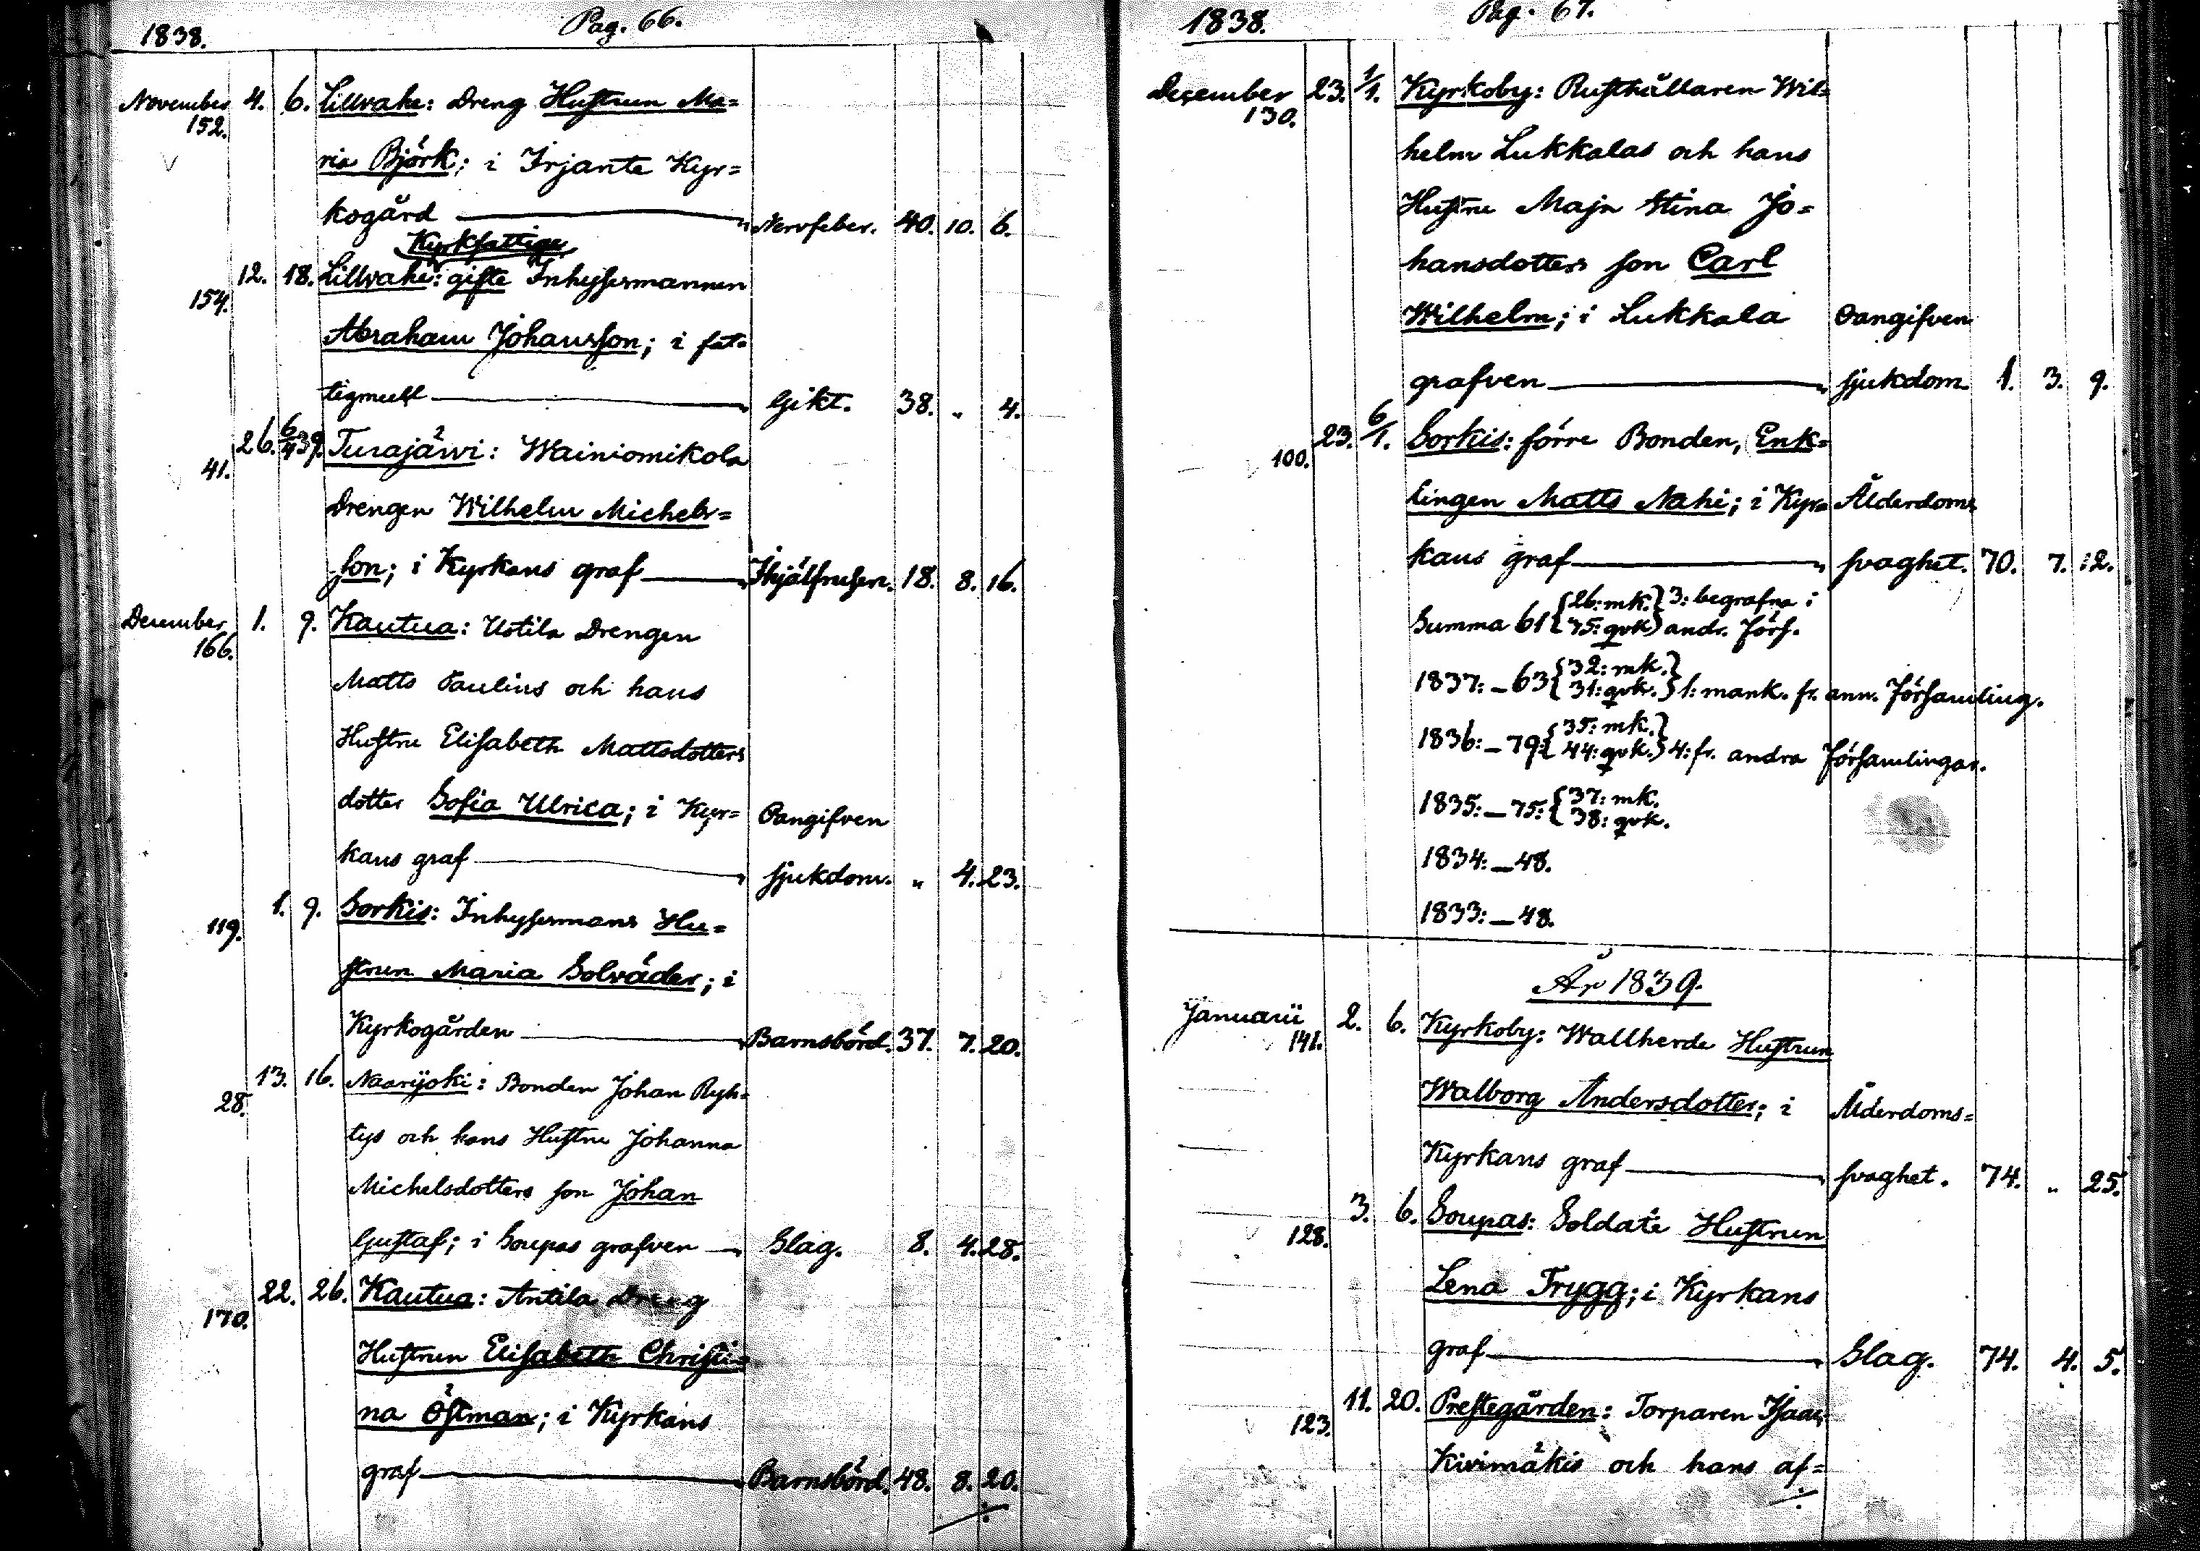 1838. Pag. 66.
November 4. 6. Lillvahe: Dreng Hustrun Ma=
152.
ria Björk; i Irjante Kyr=
kogård Nervfeber. 40. 10. 6.
Kyrkfattige
12. 18. Lillvahe: gifte Inhysesmannen
154.
Abraham Johansson; i fat=
tigmull Gikt. 38. „ 4.
26. 6/4 39. Turajärvi: Wainiomikola
41.
Drengen Wilhelm Michels=
son; i Kyrkans graf Ihjälfrusen. 18. 8. 16.
December 1. 9. Kautua: Ustila Drengen
166.
Matts Paulins och hans
Hustru Elisabeth Mattsdotters
dotter Sofia Ulrica; i Kyr= Oangifven
kans graf sjukdom. „ 4. 23.
1. 9. Sorkis: Inhysesmans Hu=
119.
strun Maria Solväder; i
Kyrkogården Barnsbörd. 37. 7. 20.
13. 16. Naarijoki: Bonden Johan Ryh=
28.
tys och hans Hustru Johanna
Michelsdotters son Johan
Gustaf; i Soupas grafven Slag. 8. 4. 28.
22. 26. Kautua: Antila Dreng
170.
Hustrun Elisabeth Christi=
na Östman; i Kyrkans
graf Barnsbörd. 48. 8. 20.
1838. Pag. 67.
December 23. 1/1. Kyrkoby: Rusthållaren Wil=
130.
helm Lukkalas och hans
Hustru Maja Stina Jo=
hansdotters son Carl
Wilhelm; i Lukkala Oangifven
grafven sjukdom 1. 3. 9.
23. 6/1. Sorkis: förre Bonden, Enk=
100.
lingen Matts Nahi; i Kyr= Ålderdoms
kans graf svaghet. 70. 7. 12.
Summa 61 {26: mk. 35: qvk} 3: begrafna i
andr. Förs.
1837: _ 63 {32: mk. 31: qvk.} 1: mank. fr. ann. Församling.
1836: _ 79: {35: mk. 44: qvk.} 4: fr. andra Församlingar.
1835: _ 75: {37: mk. 38: qvk.
1834: _ 48.
1833: _ 48.
År 1839.
Januarii 2. 6. Kyrkoby: Wallherde Hustrun
141.
Walborg Andersdotter; i Ålderdoms=
Kyrkans graf svaghet. 74. „ 25.
3. 6. Soupas: Soldate Hustrun
128.
Lena Trygg; i Kyrkans
graf Slag. 74. 4. 5.
11. 20. Prestegården: Torparen Isaac
123.
Kivimäkis och hans af=